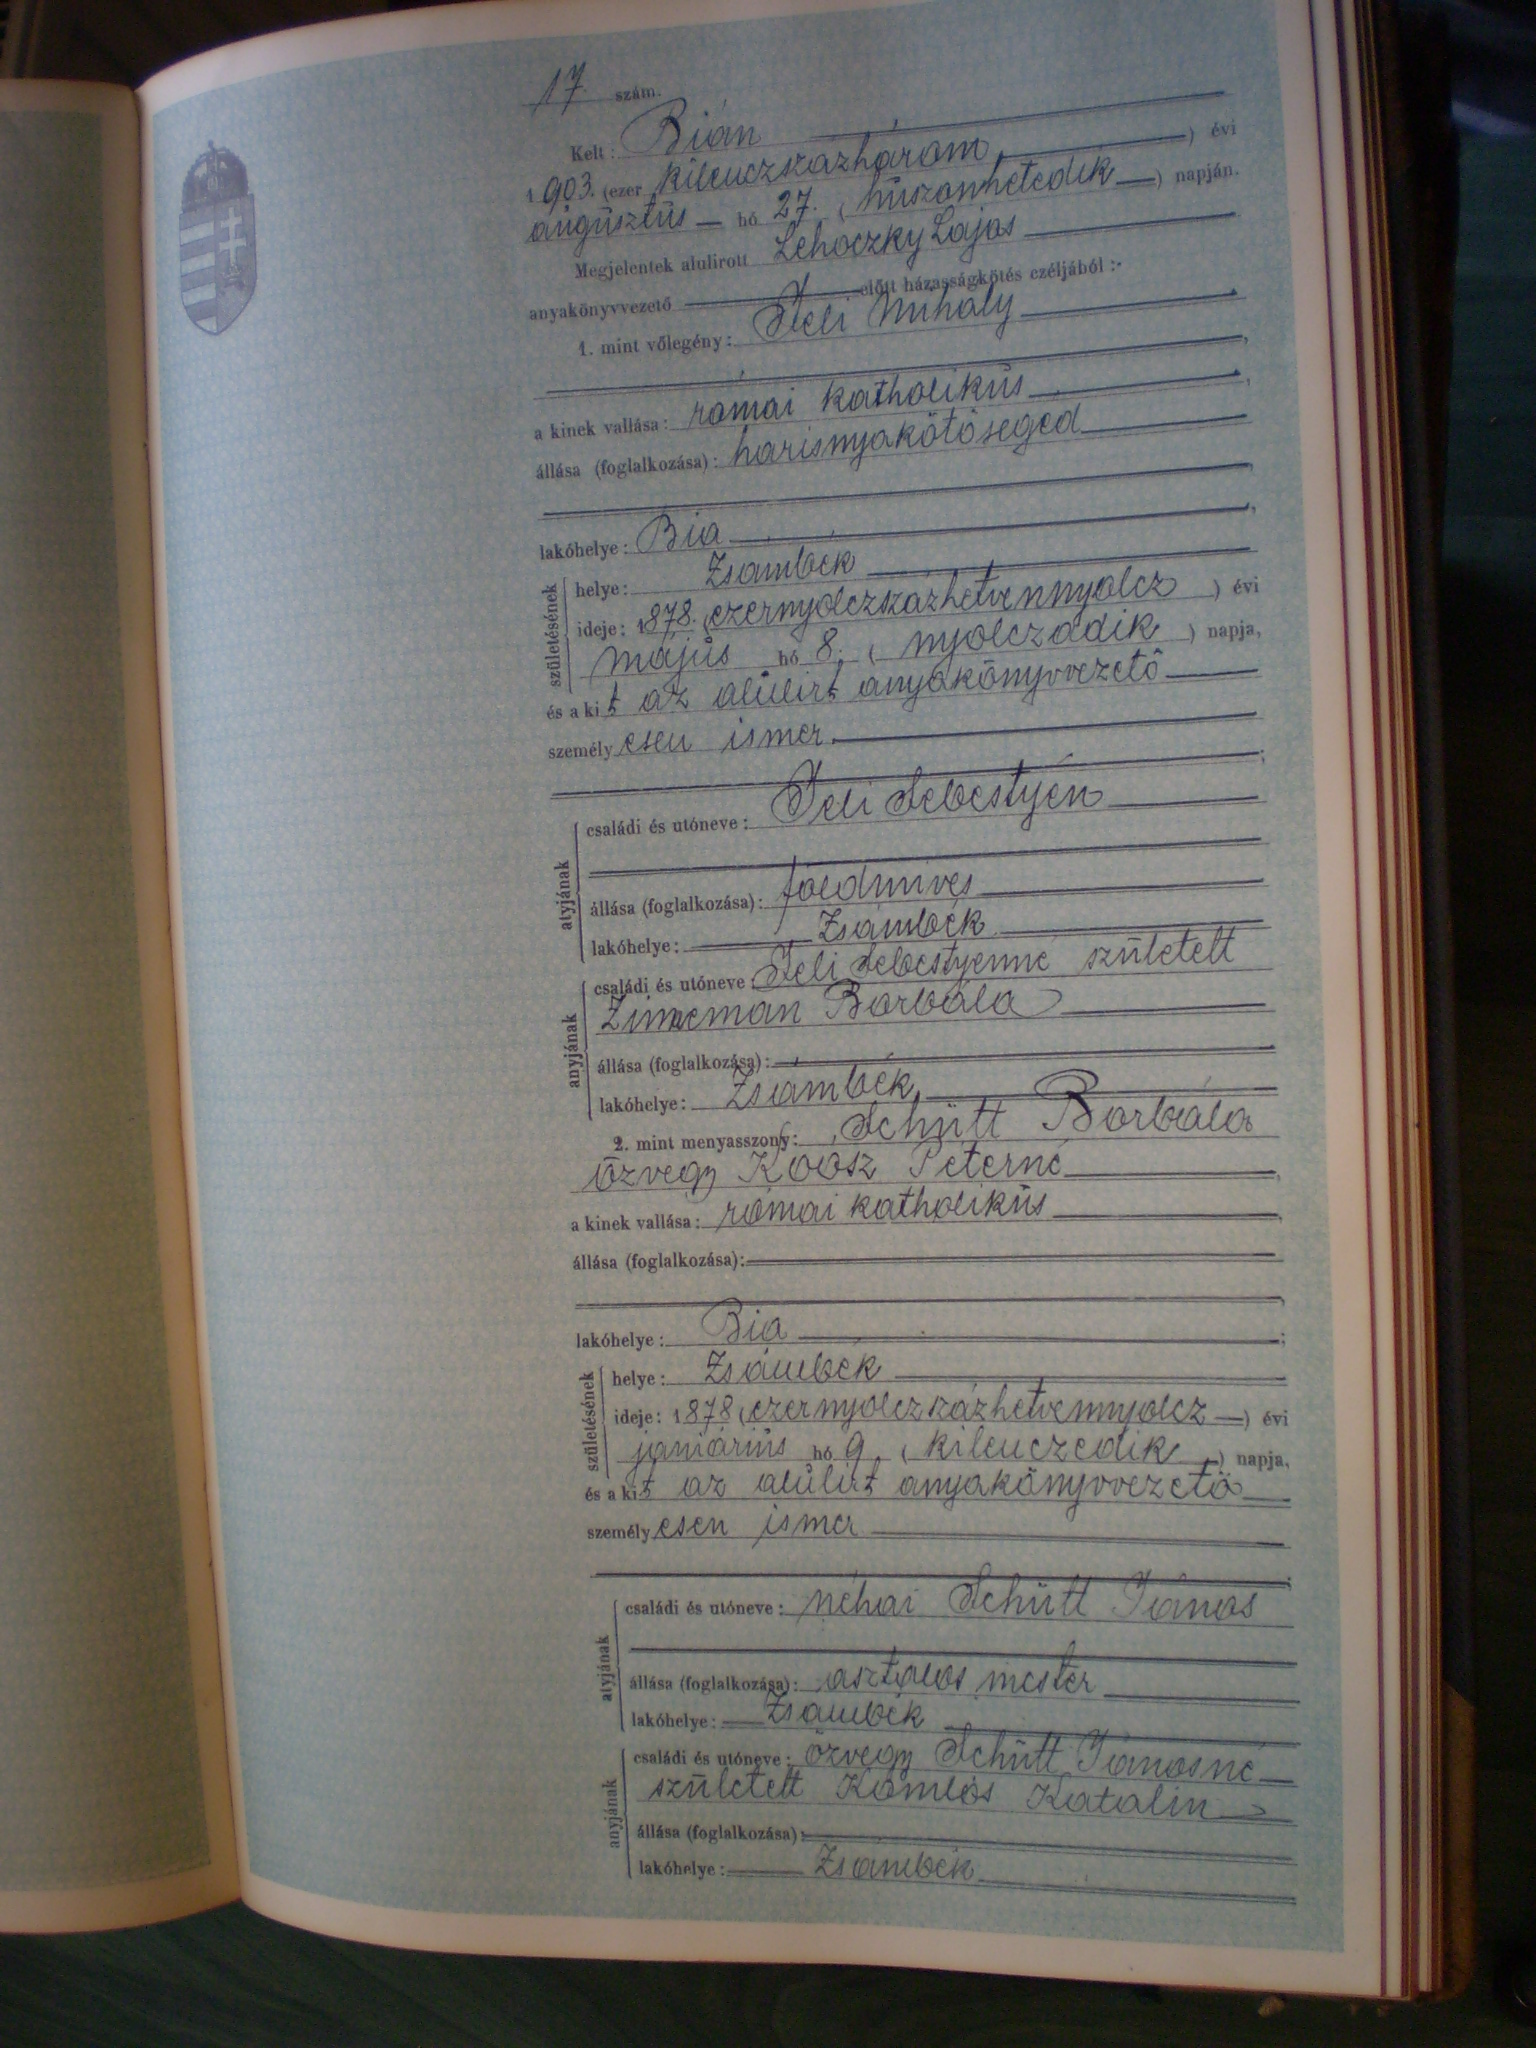 17. szám.
Kelt: Bián
1903. (ezer kilenczszázhárom) évi
augusztus hó 27. (huszonhetedik) napján.
Megjelentek alulirott Lehoczky Lajos
anyakönyvvezető előtt házasságkötés czéljából :
1. mint vőlegény: Jeli Mihály
a kinek vallása: római katholikus,
állása (foglalkozása): harisnyakötősegéd
lakóhelye: Bia,
születésének helye: Zsámbék
ideje: 1878. (ezernyolczszázhetvennyolcz) évi
május hó 8. (nyolczadik) napja,
és a kit az alulirt anyakönyvvezető
személyesen ismer.
;
atyjának családi és utóneve: Jeli Sebestyén
állása (foglalkozása): földmives
lakóhelye: Zsámbék
anyjának családi és utóneve: Jeli Sebestyénné született
Borbála
állása (foglalkozása):
lakóhelye: Zsámbék
2. mint menyasszony: Schütt Borbála
özvegy Koósz Péterné,
a kinek vallása: római katholikus,
állása (foglalkozása):
,
lakóhelye: Bia;
születésének helye: Zsámbék
ideje: 1878 (ezernyolczszázhetvennyolcz) évi
január​ius hó 9 (kilenczedik) napja,
és a kit az alulirt anyakönyvvezető
személyesen ismer
;
atyjának családi és utóneve: néhai Schütt János
állása (foglalkozása): asztalos mester
lakóhelye: Zsámbék
anyjának családi és utóneve: özvegy Schütt Jánosné
született Komlós Katalin
állása (foglalkozása):
lakóhelye: Zsámbék